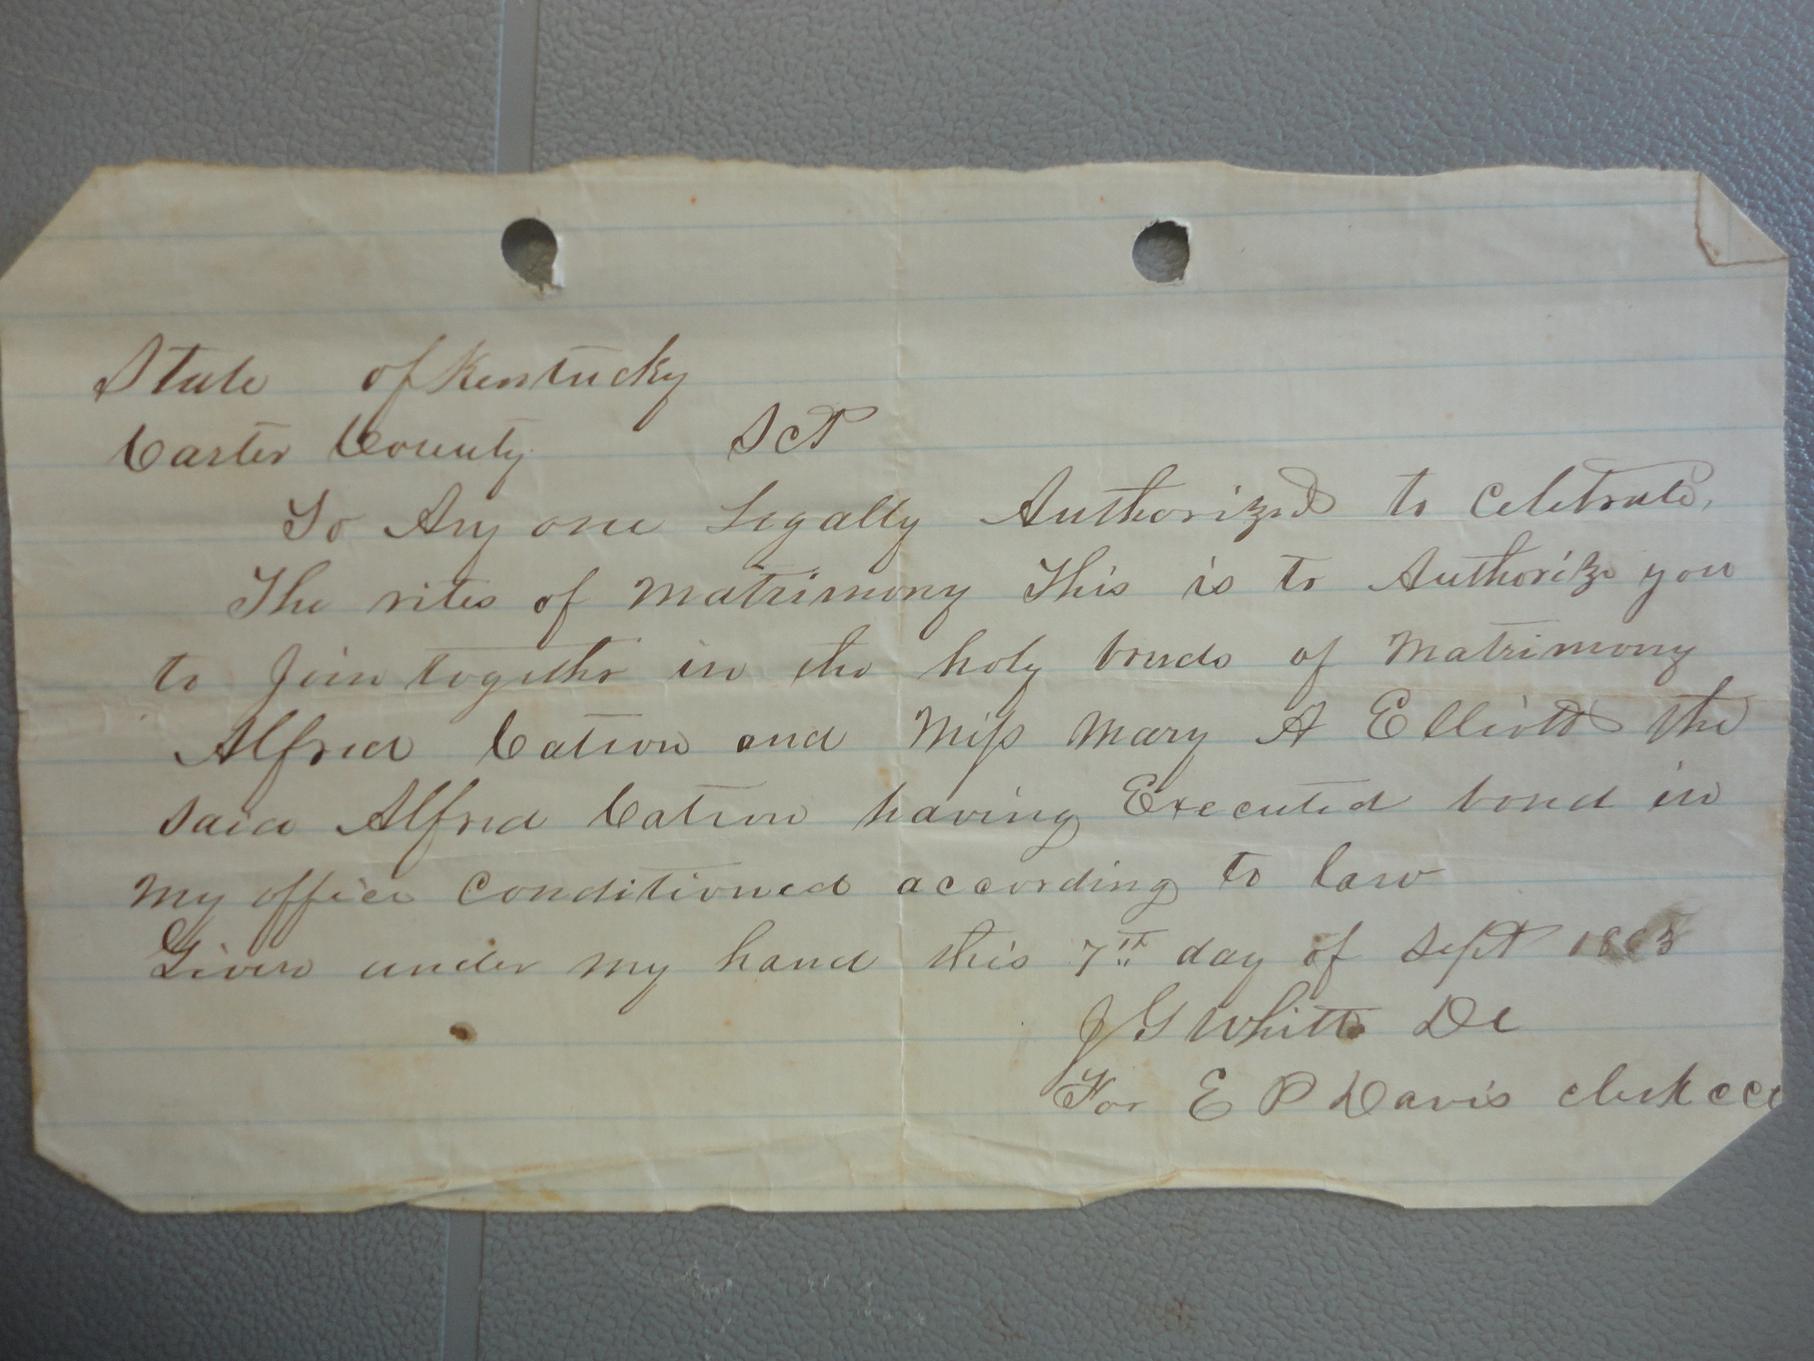 State of Kentucky
Carter County Sct
To Any one Legally Authorized to Celebrate,
The rites of Matrimony This is to Authorize you
to Join together in the holy bonds of Matrimony
Alfred Catron and Miss Mary A Elliott the
said Alfred Catron having Executed bond in
my office Conditioned according to law
Given under my hand this 7th day of Sept
J G Whitt DC
For E P Davis clerk ccc